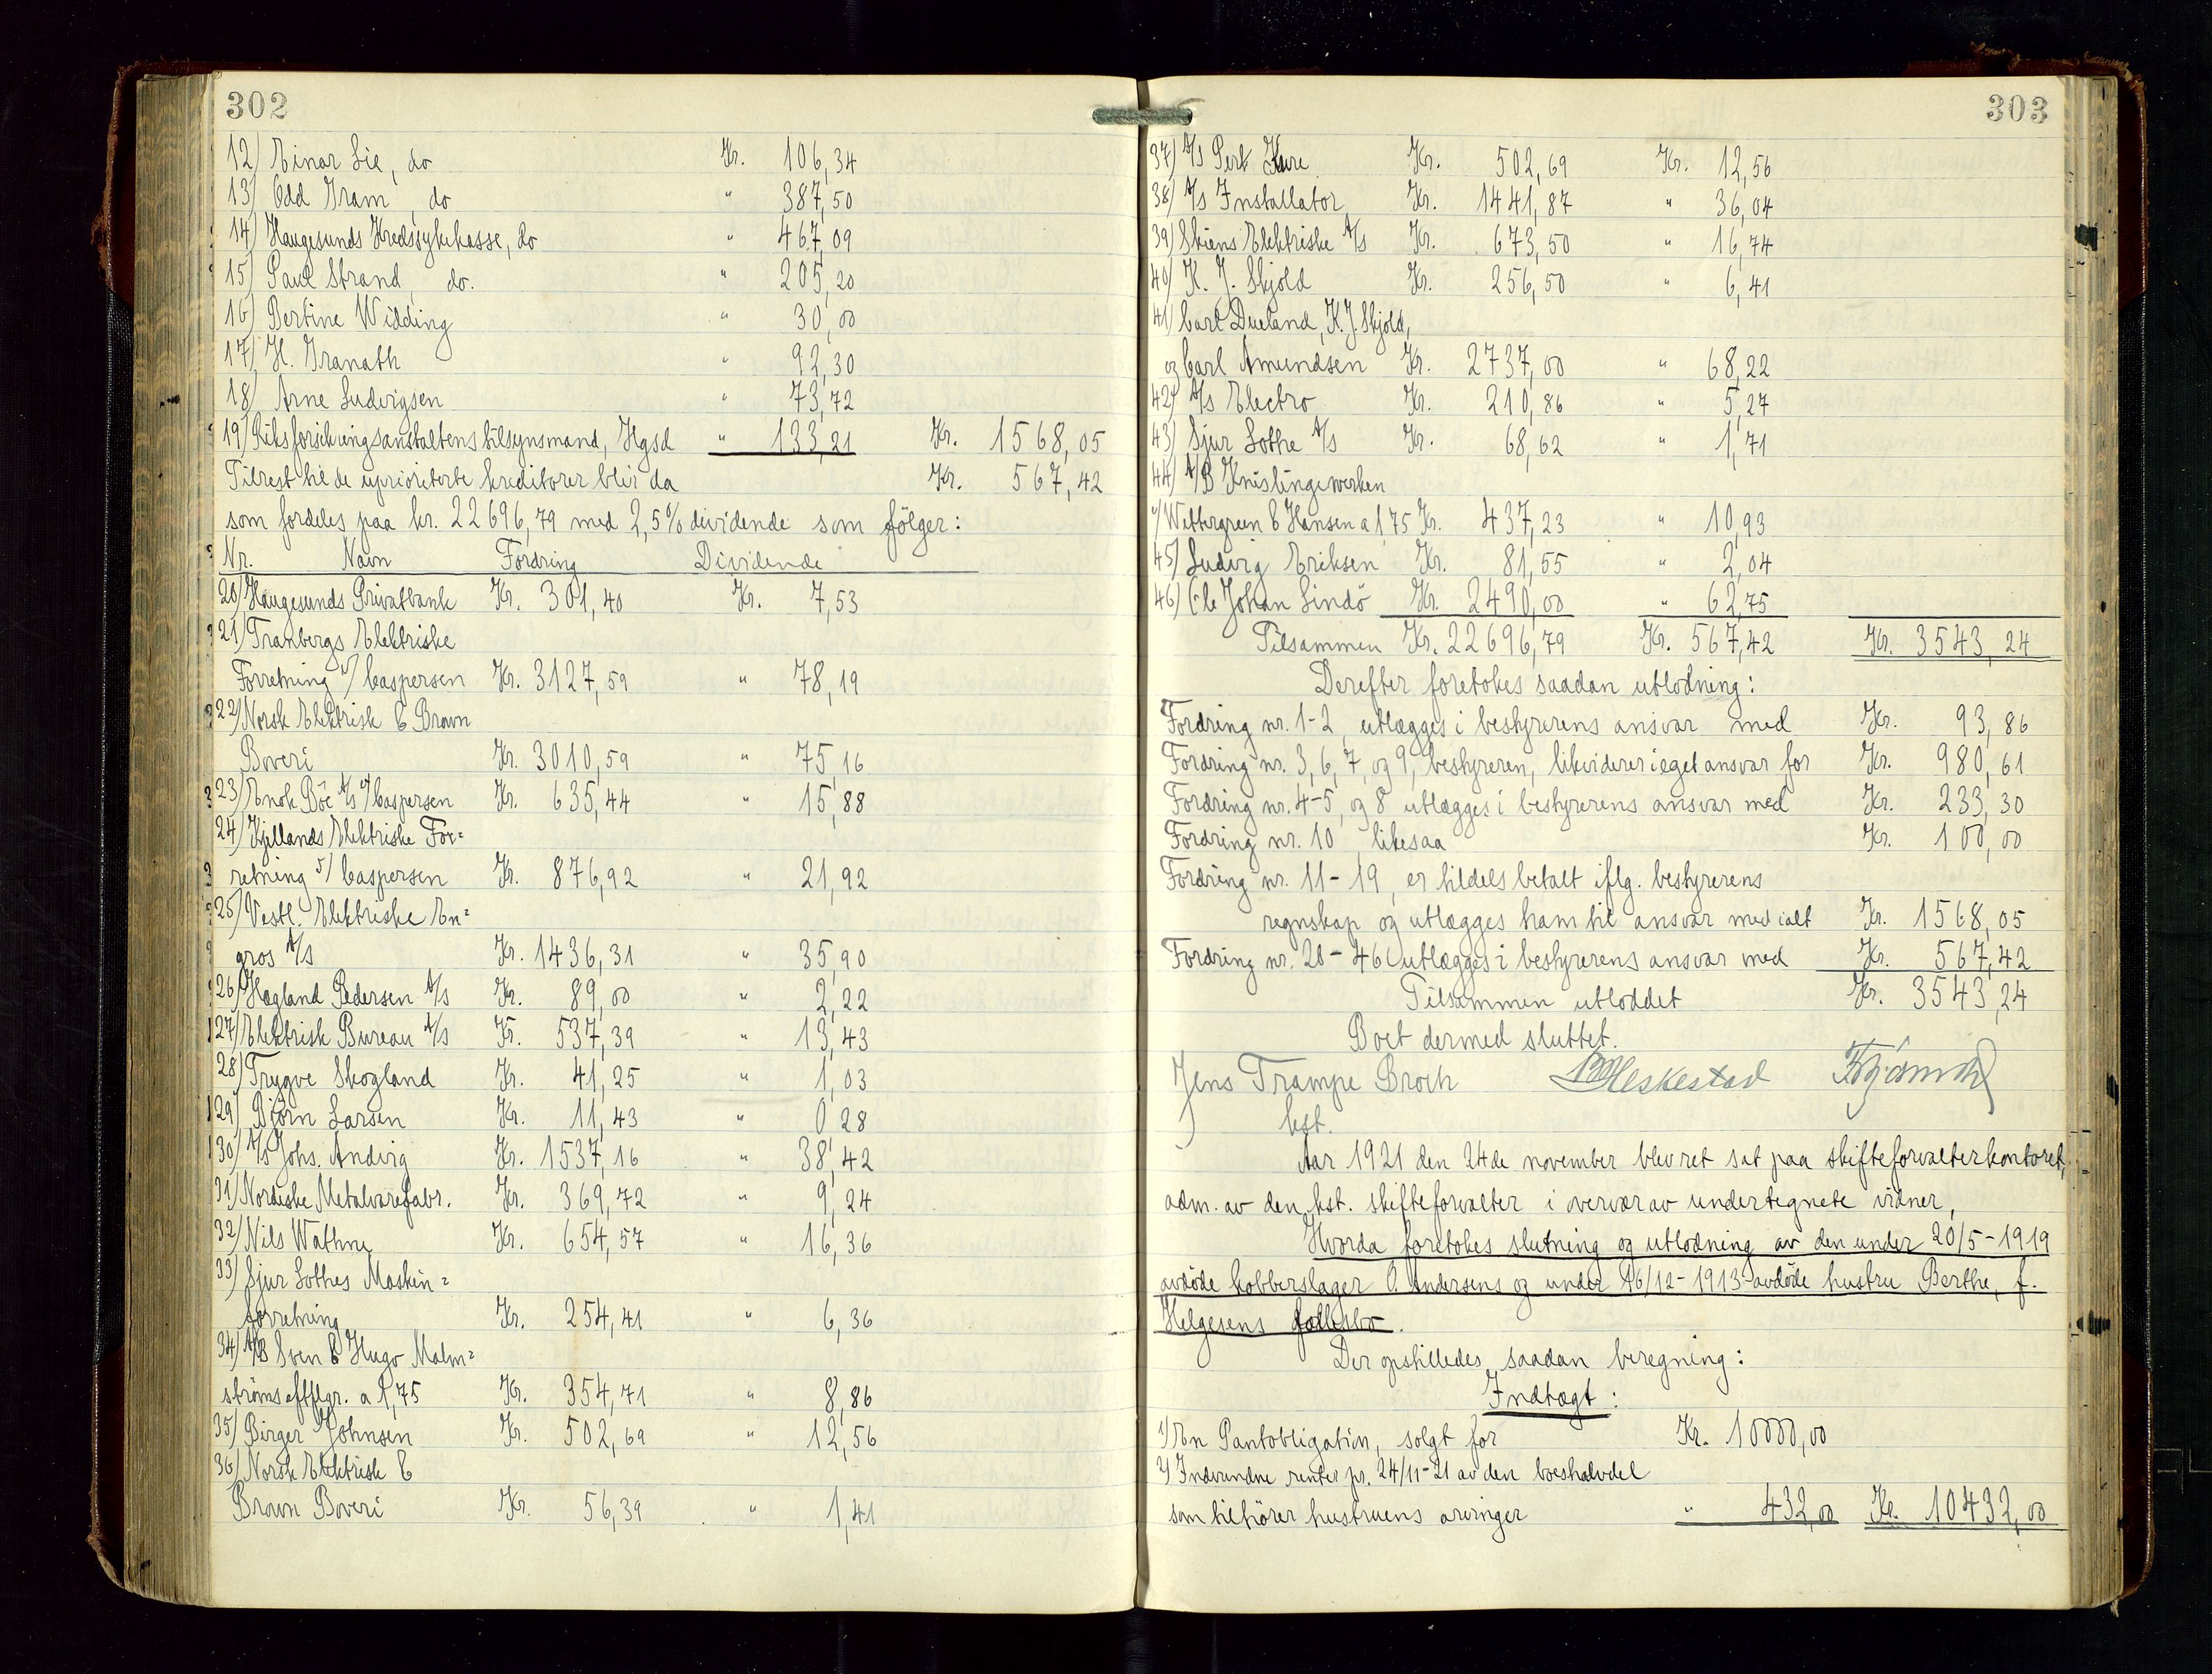 302
12) Einar Lie, do Kr. 106,34
13) Odd Gram, do " 387,50
14) Haugesunds Kredssykekasse, do " 467,09
15) Paul Strand, do. " 205,20
16) Bertine Widding " 30,00
17) H. Granath " 92,30
18) Arne Ludvigsen " 73,72
19) Riksforsikringsanstaltens tilsynsmand, Hgsd " 133,21 Kr. 1568,05
Tilrest til de uprioriterte kreditorer blir da Kr. 567,42
som fordeles paa kr. 22696,79 med 2,5% dividende som følger:
Nr. Navn Fordring Dividende
20) Haugesunds Privatbank Kr. 301,40 Kr. 7,53
21) Tranbergs Elektriske
Forretning v/ Caspersen Kr. 3127,59 " 78,19
22) Norsk Elektrisk & Brown
Boveri Kr. 3010,59 " 75,16
23) Enok Böe A/s v/ Caspersen Kr. 635,44 " 15,88
24) Kjellands Elektriske For=
retning v/ Caspersen Kr. 876,92 " 21,92
25) Vestl. Elektriske En=
gros A/s Kr. 1436,31 " 35,90
26) Hagland Pedersen A/s Kr. 89,00 " 2,22
27) Elektrisk Bureau A/s Kr. 537,39 " 13,43
28) Trygve Skogland Kr. 41,25 " 1,03
29) Björn Larsen Kr. 11,43 " 0 28
30) A/s Johs. Andvig Kr. 1537,16 " 38,42
31) Nordiske Metalvarefabr. Kr. 369,72 " 9,24
32) Nils Wathne Kr. 654,57 " 16,36
33) Sjur Lothes Maskin=
forretning Kr. 254,41 " 6,36
34) A/B Sven & Hugo Malm=
ströms efftflgr. a 1,75 Kr. 354,71 " 8,86
35) Birger Johnsen Kr. 502,69 " 12,56
36) Norsk Elektrisk &
Brown Boveri Kr. 56,39 " 1,41
303
37) A/s Pert Kr. 502,69 Kr. 12,56
38) A/s Installator Kr. 1441,87 " 36,04
39) Skiens Elektriske A/s Kr. 673,50 " 16,74
40) K. J. Skjold Kr. 256,50 " 6,41
41) Carl Dueland, K.J. Skjold,
og Carl Amundsen Kr. 2737,00 " 68,22
42) A/s Electro Kr. 210,86 " 5,27
43) Sjur Lothe A/s Kr. 68,62 " 1,71
44) A/B Knislingewerken
v/ Wettergreen & Hansen a 1,75 Kr. 437,23 " 10,93
45) Ludvig Eriksen Kr. 81,55 " 2,04
46) Ole Johan Lindö Kr. 2490,00 " 62,75
Tilsammen Kr. 22696,79 Kr. 567,42 Kr. 3543,24
Derefter foretokes saadan utlodning:
Fordring nr. 1-2, utlægges i bestyrerens ansvar med Kr. 93,86
Fordring nr. 3, 6, 7, og 9, bestyreren, likviderer i eget ansvar for Kr. 980,61
Fordring nr. 4-5, og 8 utlægges i bestyrerens ansvar med Kr. 233,30
Fordring nr. 10 likesaa Kr. 100,00
Fordring nr. 11-19, er tildels betalt iflg. bestyrerens
regnskap og utlægges ham til ansvar med ialt Kr. 1568,05
Fordring nr. 20-46 utlægges i bestyrerens ansvar med Kr. 567,42
Tilsammen utloddet Kr. 3543,24
Boet dermed sluttet.
Jens Trampe Broch Heskestad
kst.
Aar 1921 den 24de november blev ret sat paa skifteforvalterkontoret,
adm. av den kst. skifteforvalter i overvær av undertegnete vidner,
Hvorda foretokes slutning og utlodning av den under 20/5-1919
avdöde kobberslager O. Andersens og under 16/12-1913 avdöde hustru Berthe, f.
Helgesens fællesbo.
Der opstilledes saadan beregning:
Indtægt:
1) En Pantobligation, solgt for Kr. 10000,00
2) Indvundne renter pr. 24/11-21 av den boeshalvdel
som tilhörer hustruens arvinger " 432,00 Kr. 10432,00